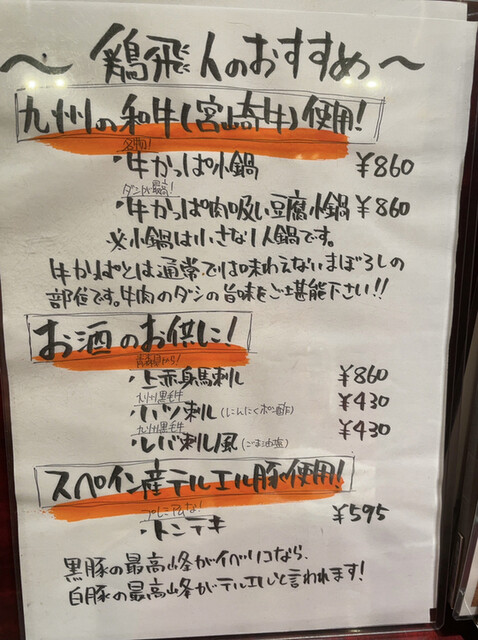 ～鶏飛人のおすすめ～
九州の和牛(宮崎牛)使用!
名物!
・牛かっぱ小鍋 ¥860
ダシが最高!
・牛かっぱ肉吸い豆腐小鍋 ¥860
※小鍋は小さな1人鍋です。
牛かっぱとは通常では味わえないまぼろしの
部位です。牛肉のダシの旨味をご堪能下さい!!
お酒のお供に!
・上赤身馬刺 ¥860
九州黒毛牛
・ハツ刺(にんにくポン酢) ¥430
九州黒毛牛
・レバ刺風(ごま油塩) ¥430
スペイン産テルエル豚使用!
プレミアムな!
・トンテキ ¥595
黒豚の最高峰がイベリコなら、
白豚の最高峰がテルエルと言われます!